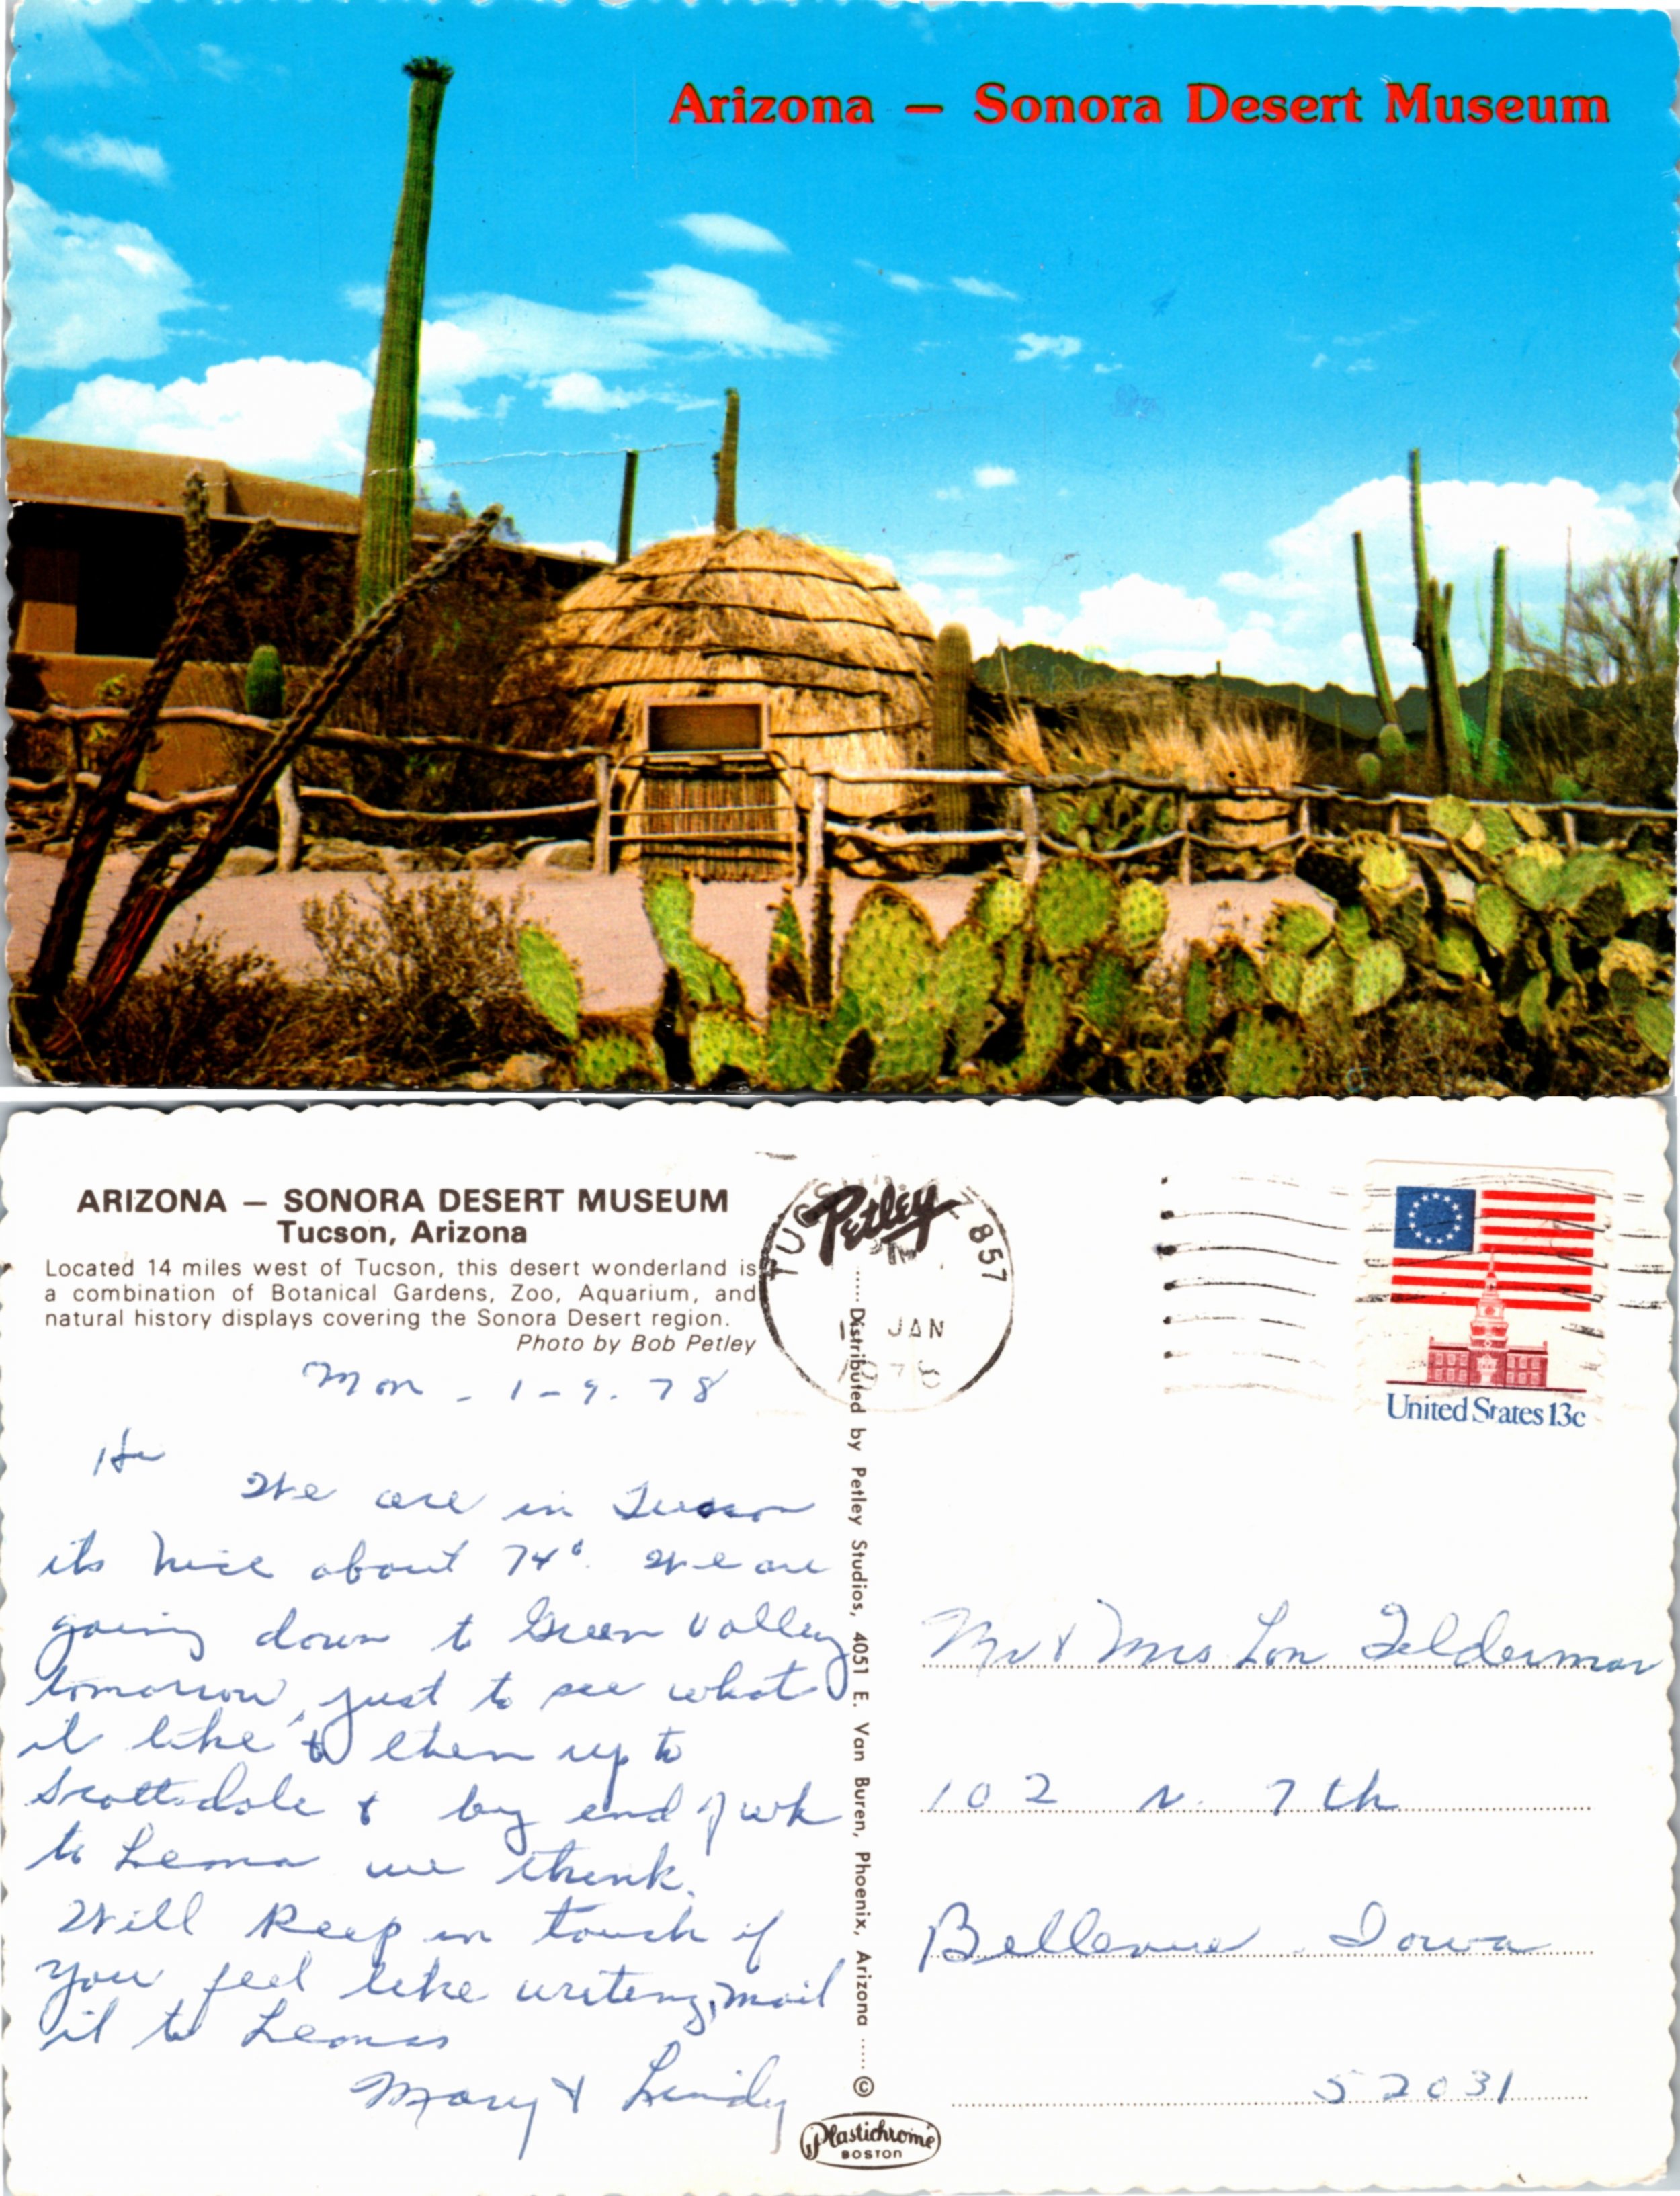 Arizona — Sonora Desert Museum
ARIZONA — SONORA DESERT MUSEUM
Tucson, Arizona
Located 14 miles west of Tucson, this desert wonderland is
a combination of Botanical Gardens, Zoo, Aquarium, and
natural history displays covering the Sonora Desert region.
Photo by Bob Petley
Mon - 1-9-78
Hi
We are in Tucson
its nice about 74°. We are
going down to Green Valley
tomorrow, just to see what
it like & then up to
Scottsdale & by end of wk
to Leona we think.
Will keep in touch if
you feel like writeng, mail
it to Leonas
Mary & Lindy
Petley
TUCSON 857
JAN
1978
Distributed by Petley Studios, 4051 E. Van Buren, Phoenix, Arizona ©
Plastichrome
BOSTON
United States 13c
Mr & Mrs Lon
102 N. 7th
Bellevue Iowa
52031